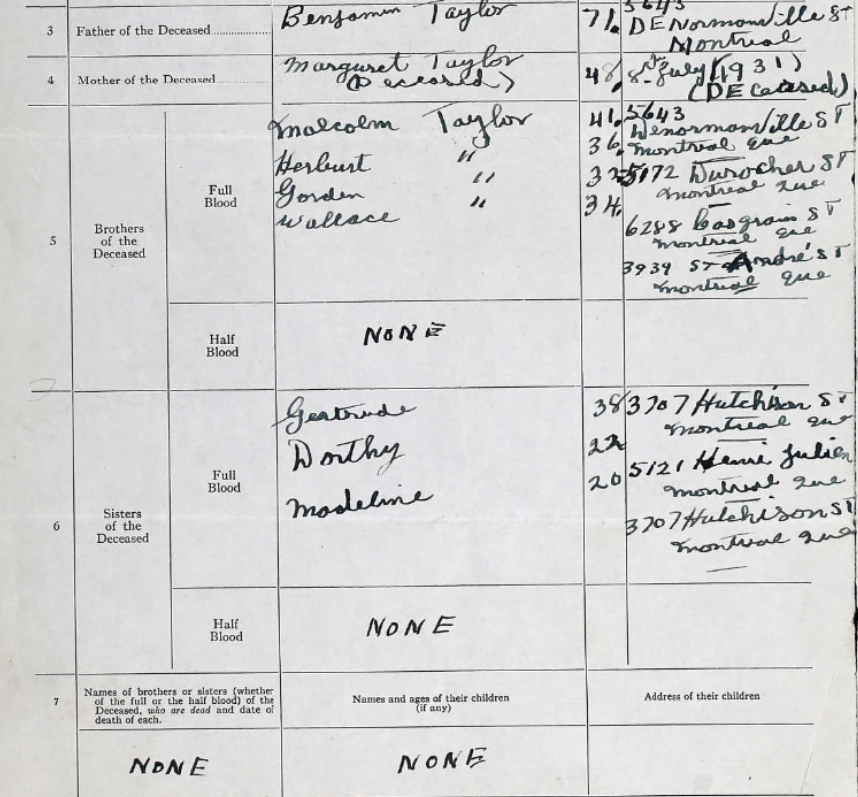 3 Father of the Deceased Benjamin Taylor 71. 5643
DENormanville St
Montreal
4 Mother of the Deceased Margaret Taylor 48, 8th July (1931)
(Deceased) (DECeased)
5 Brothers of the Deceased
Full Blood
Malcolm Taylor 41. 5643
Denormanville ST
36. Montreal Que
Herburt " 5172 Durocher ST
Montreal Que
Gorden "
Wallace " 34.
6288 Casgrain ST
Montreal Que
3939 St André ST
Montreal Que
Half Blood
NONE
6 Sisters of the Deceased
Full Blood
Gertrude 38 3707 Hutchison ST
Montreal Que
Dorthy 22
5121 Henri Julien
Madeline 20 Montreal Que
3707 Hutchison ST
Montreal Que
Half Blood
NONE
7 Names of brothers or sisters (whether
of the full or the half blood) of the
Deceased, who are dead and date of
death of each.
Names and ages of their children
(if any)
Address of their children
NONE NONE